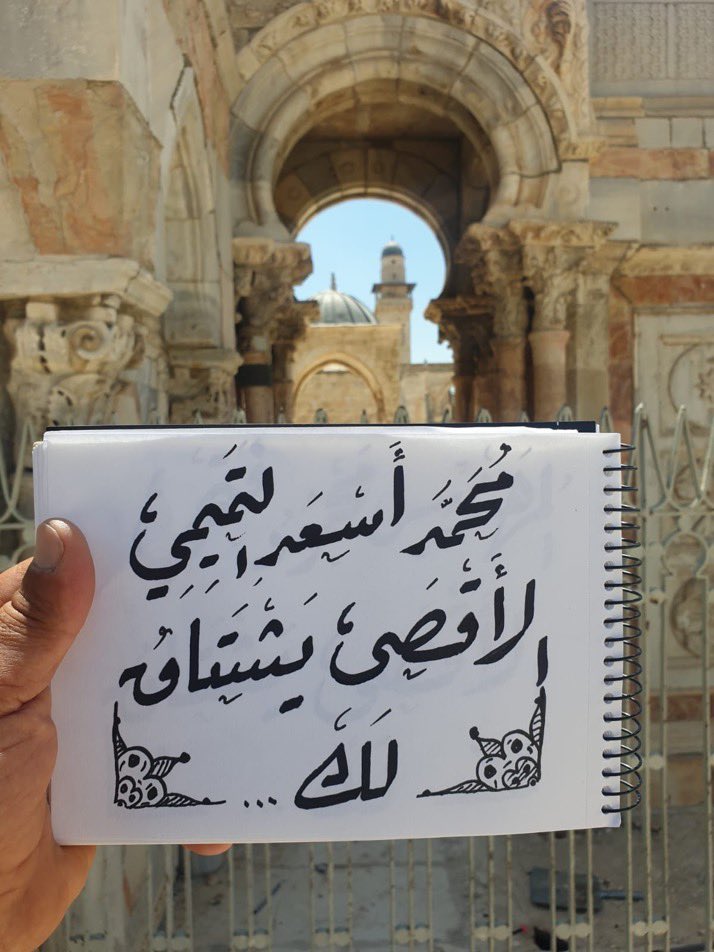 مُحَمَّد أَسْعَد التَمِيمِي
الأَقْصَى يَشْتَاقُ
لَكَ ...